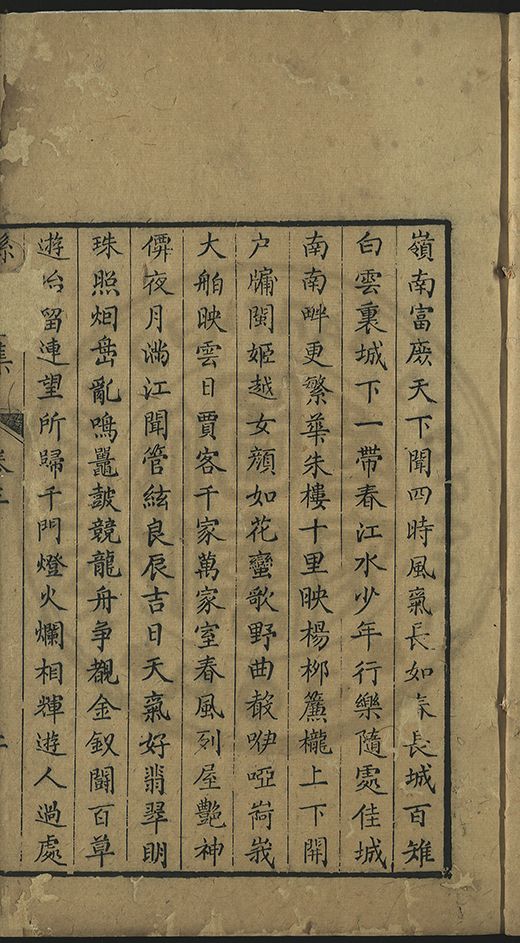 嶺南富庶天下聞四時風氣長如春長城百雉
白雲裏城下一帶春江水少年行樂隨處佳城
南南畔更繁華朱樓十里映楊柳簾櫳上下開
户牖閩姬越女顏如花蠻歌野曲聲咿啞岢峩
大舶映雲日賈客千家萬家室春風列屋艷神
僊夜月滿江聞管絃良辰吉日天氣好翡翠明
珠照烟島亂鳴鼉鼓競龍舟爭覩金釵鬭百草
遊冶留連望所歸千門燈火爛相輝遊人過處